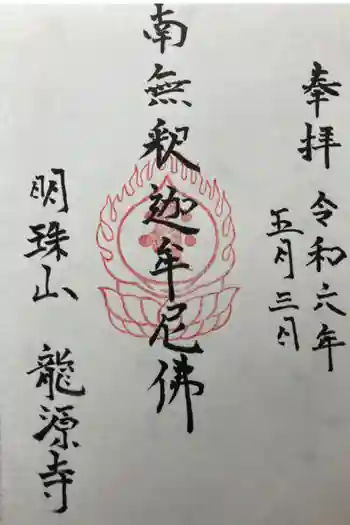 奉拝
令和六年
五月三日
南無釈迦牟尼佛
明珠山
龍源寺